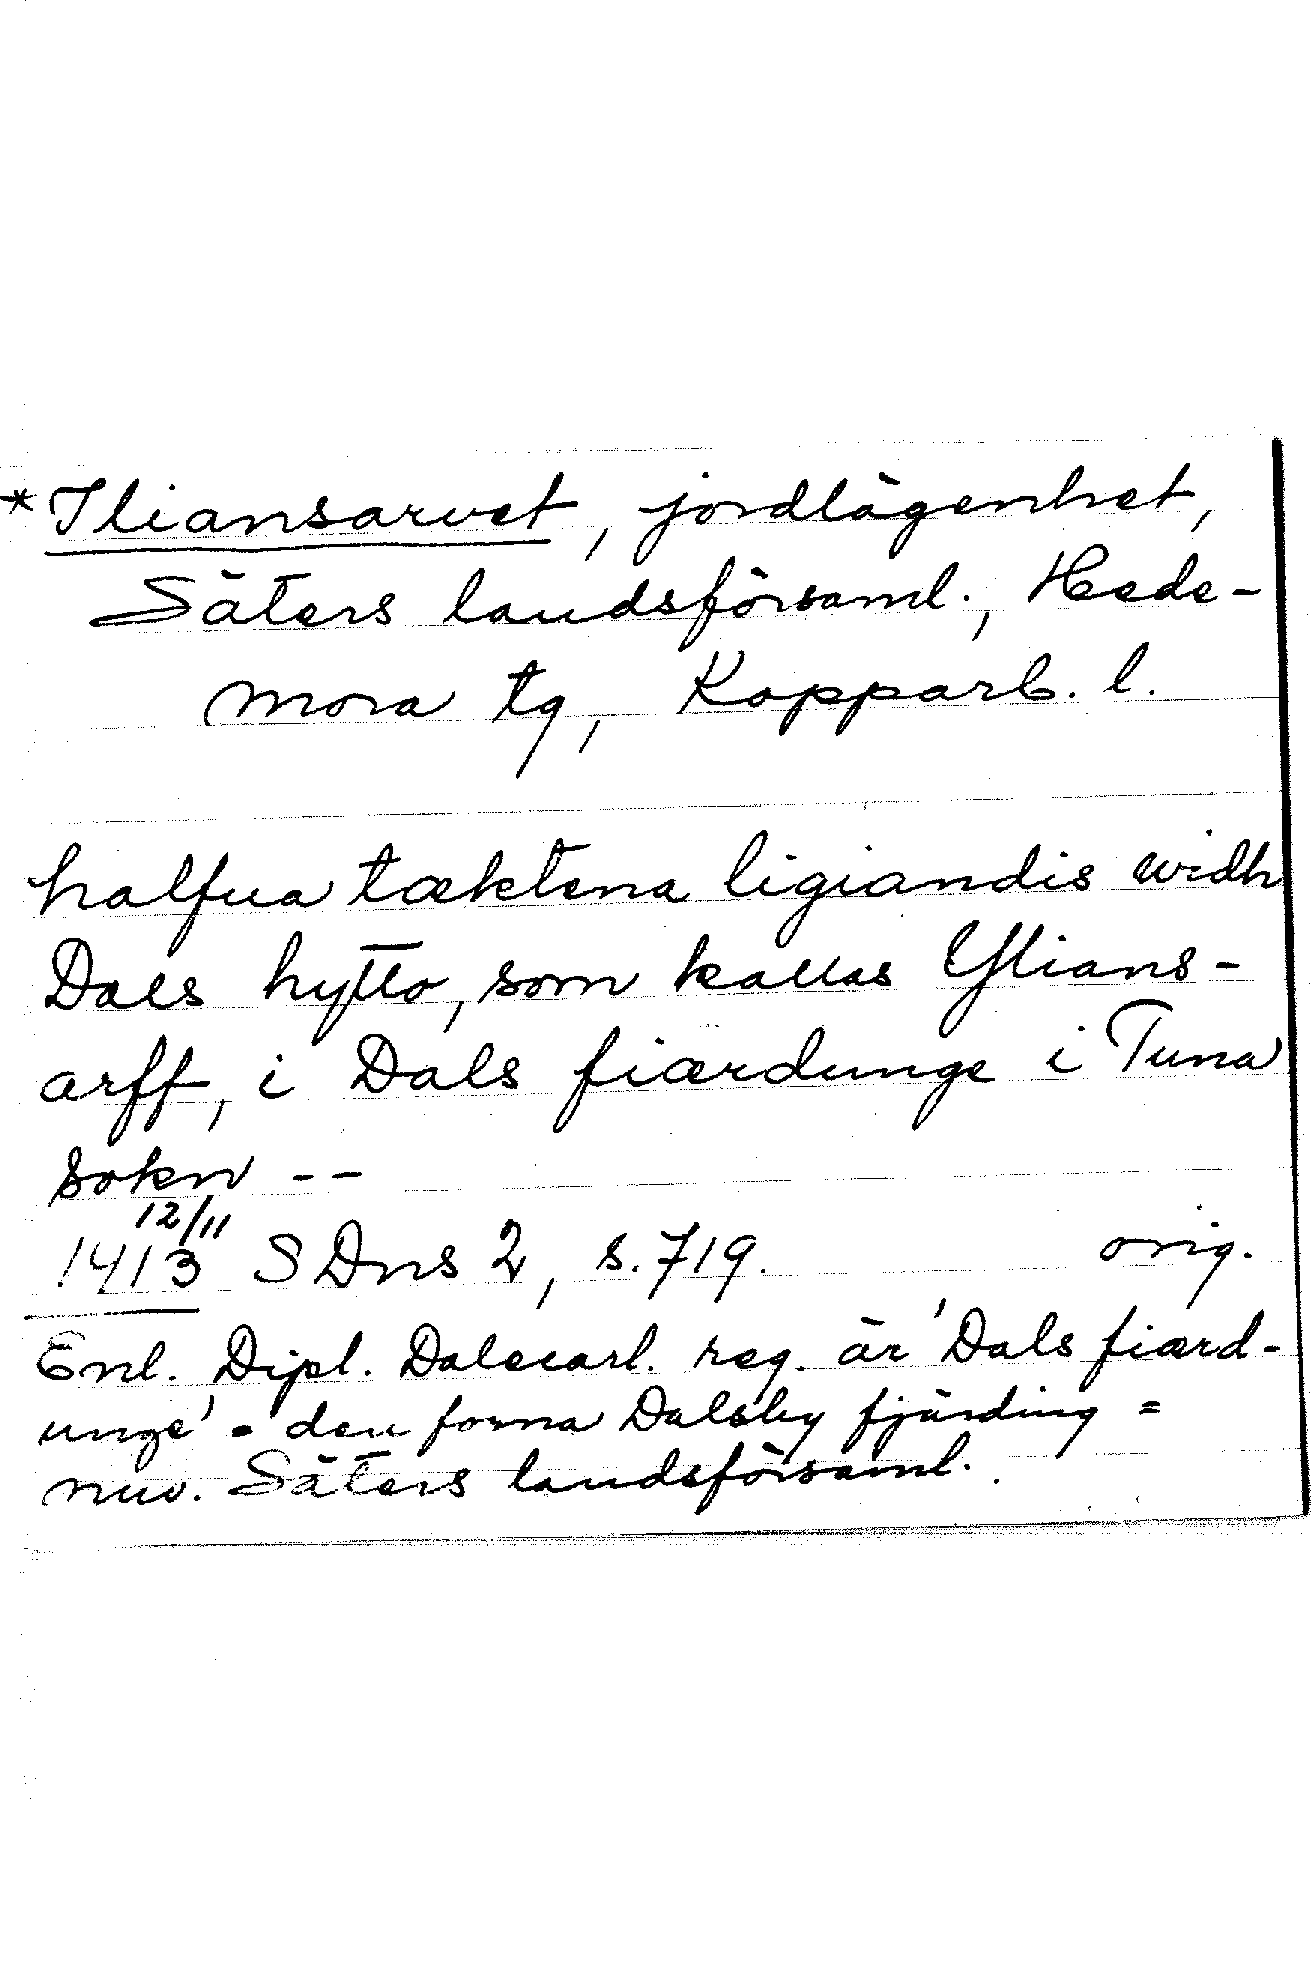 *Iliansarvet, jordlägenhet,
Säters landsförsaml., Hede-
mora tg, Kopparb. l.
halfua tæktena ligiandis widh
Dals hytto, som kallas Ylians-
arff, i Dals fiærdunge i Tuna
sokn --
1413 12/11 SDns 2, s. 719. orig.
Enl. Dipl. Dalecarl. reg. är 'Dals fiærd-
unge' = den forna Dalsby fjärding =
nuv. Säters landsförsaml.